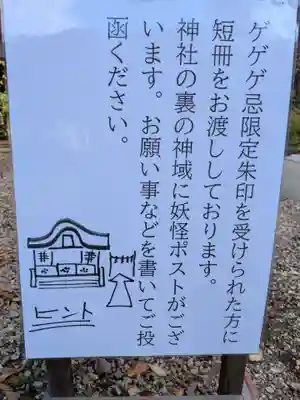 ゲゲゲ忌限定朱印を受けられた方に
短冊をお渡ししております。
神社の裏の神域に妖怪ポストがござ
います。お願い事などを書いてご投
函ください。
ヒント